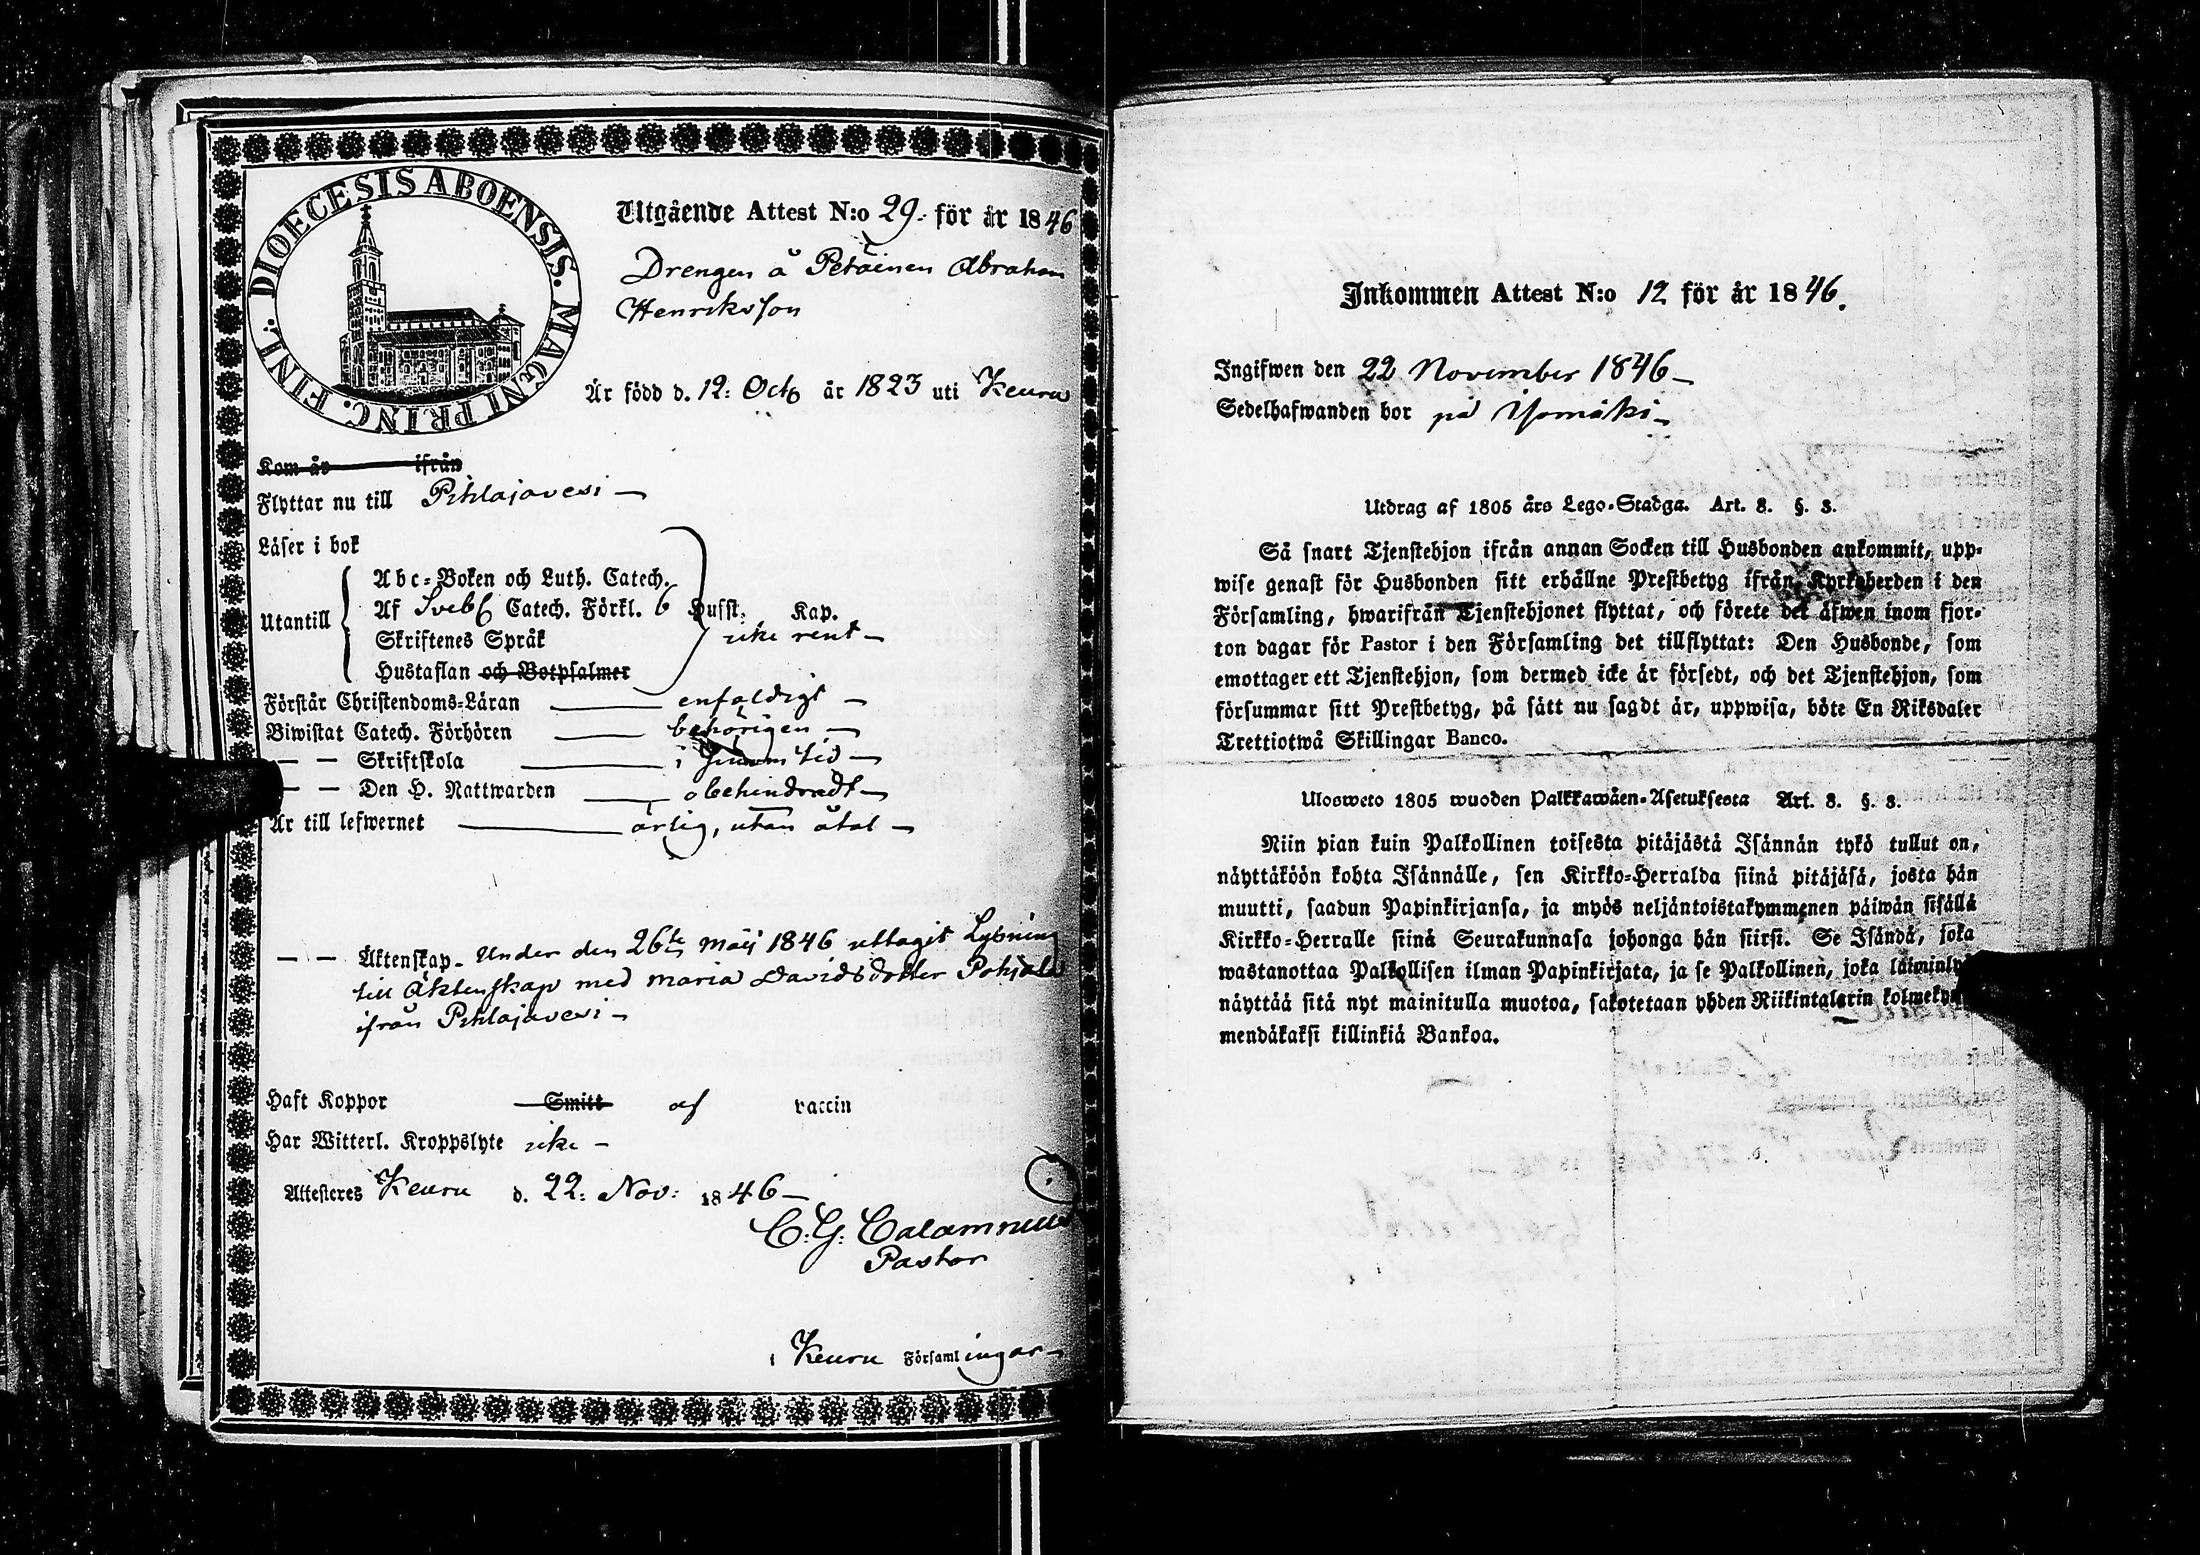 DIOECESIS ABOENSIS. MAGNI PRINC. FINL.
Utgående Attest N:o 29. för år 1846
Drengen å Petäinen Abraham
Henriksson
Är född d. 12: Octb år 1823 uti Keuru
Kom år ifrån
Flyttar nu till Pihlajavesi —
Läser i bok
Utantill
Abc-Boken och Luth. Catech.
Af Sveb. Catech. Förkl. 6 Hufst. Kap.
Skriftenes Språk icke rent —
Hustaflan och Botpsalmer
Förstår Christendoms-Läran — enfaldigt —
Biwistat Catech. Förhören — behörigen —
— — Skriftskola — i sinom tid —
— — Den H. Nattwarden — obehindradt —
Är till lefwernet — ärlig, utan åtal —
— — Äktenskap. Under den 26te Maij 1846 uttagit Lysning
till Äktenskap med Maria Davidsdotter Pohjola
ifrån Pihlajavesi —
Haft Koppor Smitt af vaccin
Har Witterl. Kroppslyte icke —
Attesteres Keuru d. 22: Nov: 1846 —
C. G. Calamnius
Pastor
i Keuru Församlingar —
Inkommen Attest N:o 12 för år 1846.
Ingifwen den 22 November 1846 —
Sedelhafwanden bor på Isomäki —
Utdrag af 1805 års Lego-Stadga. Art. 8. §. 8.
Så snart Tjenstehjon ifrån annan Socken till Husbonden ankommit, upp-
wise genast för Husbonden sitt erhållne Prestbetyg ifrån Kyrkoherden i den
Församling, hwarifrån Tjenstehjonet flyttat, och förete det äfwen inom fjor-
ton dagar för Pastor i den Församling det tillflyttat: Den Husbonde, som
emottager ett Tjenstehjon, som dermed icke är försedt, och det Tjenstehjon, som
försummar sitt Prestbetyg, på sätt nu sagdt är, uppwisa, böte En Riksdaler
Trettiotwå Skillingar Banco.
Ulosweto 1805 wuoden Palkkawäen-Asetuksesta Art. 8. §. 8.
Niin pian kuin Palkollinen toisesta pitäjästä Isännän tykö tullut on,
näyttäköön kohta Isännälle, sen Kirkko-Herralda siinä pitäjäsä, josta hän
muutti, saadun Papinkirjansa, ja myös neljäntoistakymmenen päiwän sisällä
Kirkko-Herralle siinä Seurakunnasa johonga hän siirsi. Se Isändä, joka
wastanottaa Palkollisen ilman Papinkirjata, ja se Palkollinen, joka
näyttää sitä nyt mainitulla muotoa, sakotetaan yhden Riikintalarin
mendäkaksi killinkiä Bankoa.